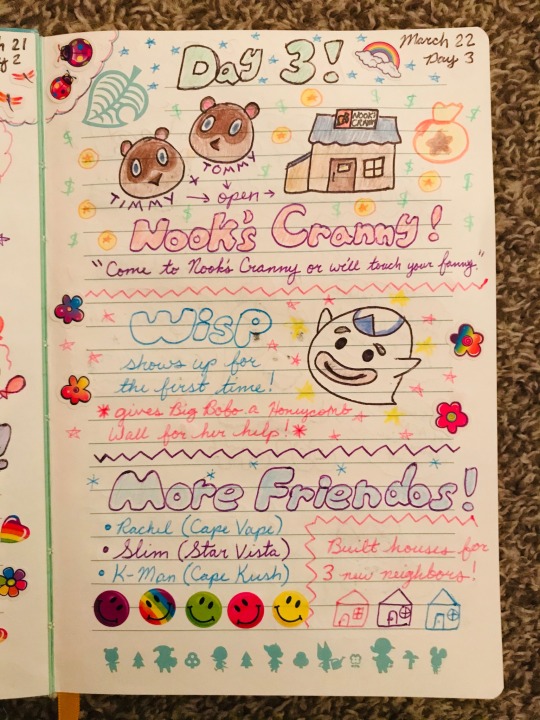 h 21
y 2
March 22
Day 3
Day 3!
TOMMY
TIMMY
open
NOOK'S CRANNY
Nook's Cranny!
"Come to Nook's Cranny or we'll touch your fanny."
Wisp
shows up for
the first time!
* gives Big Bobo a Honeycomb
Wall for her help! *
More Friendos!
• Rachel (Cape Vape)
• Slim (Star Vista)
• K-Man (Cape Kush)
Built houses for
3 new neighbors!